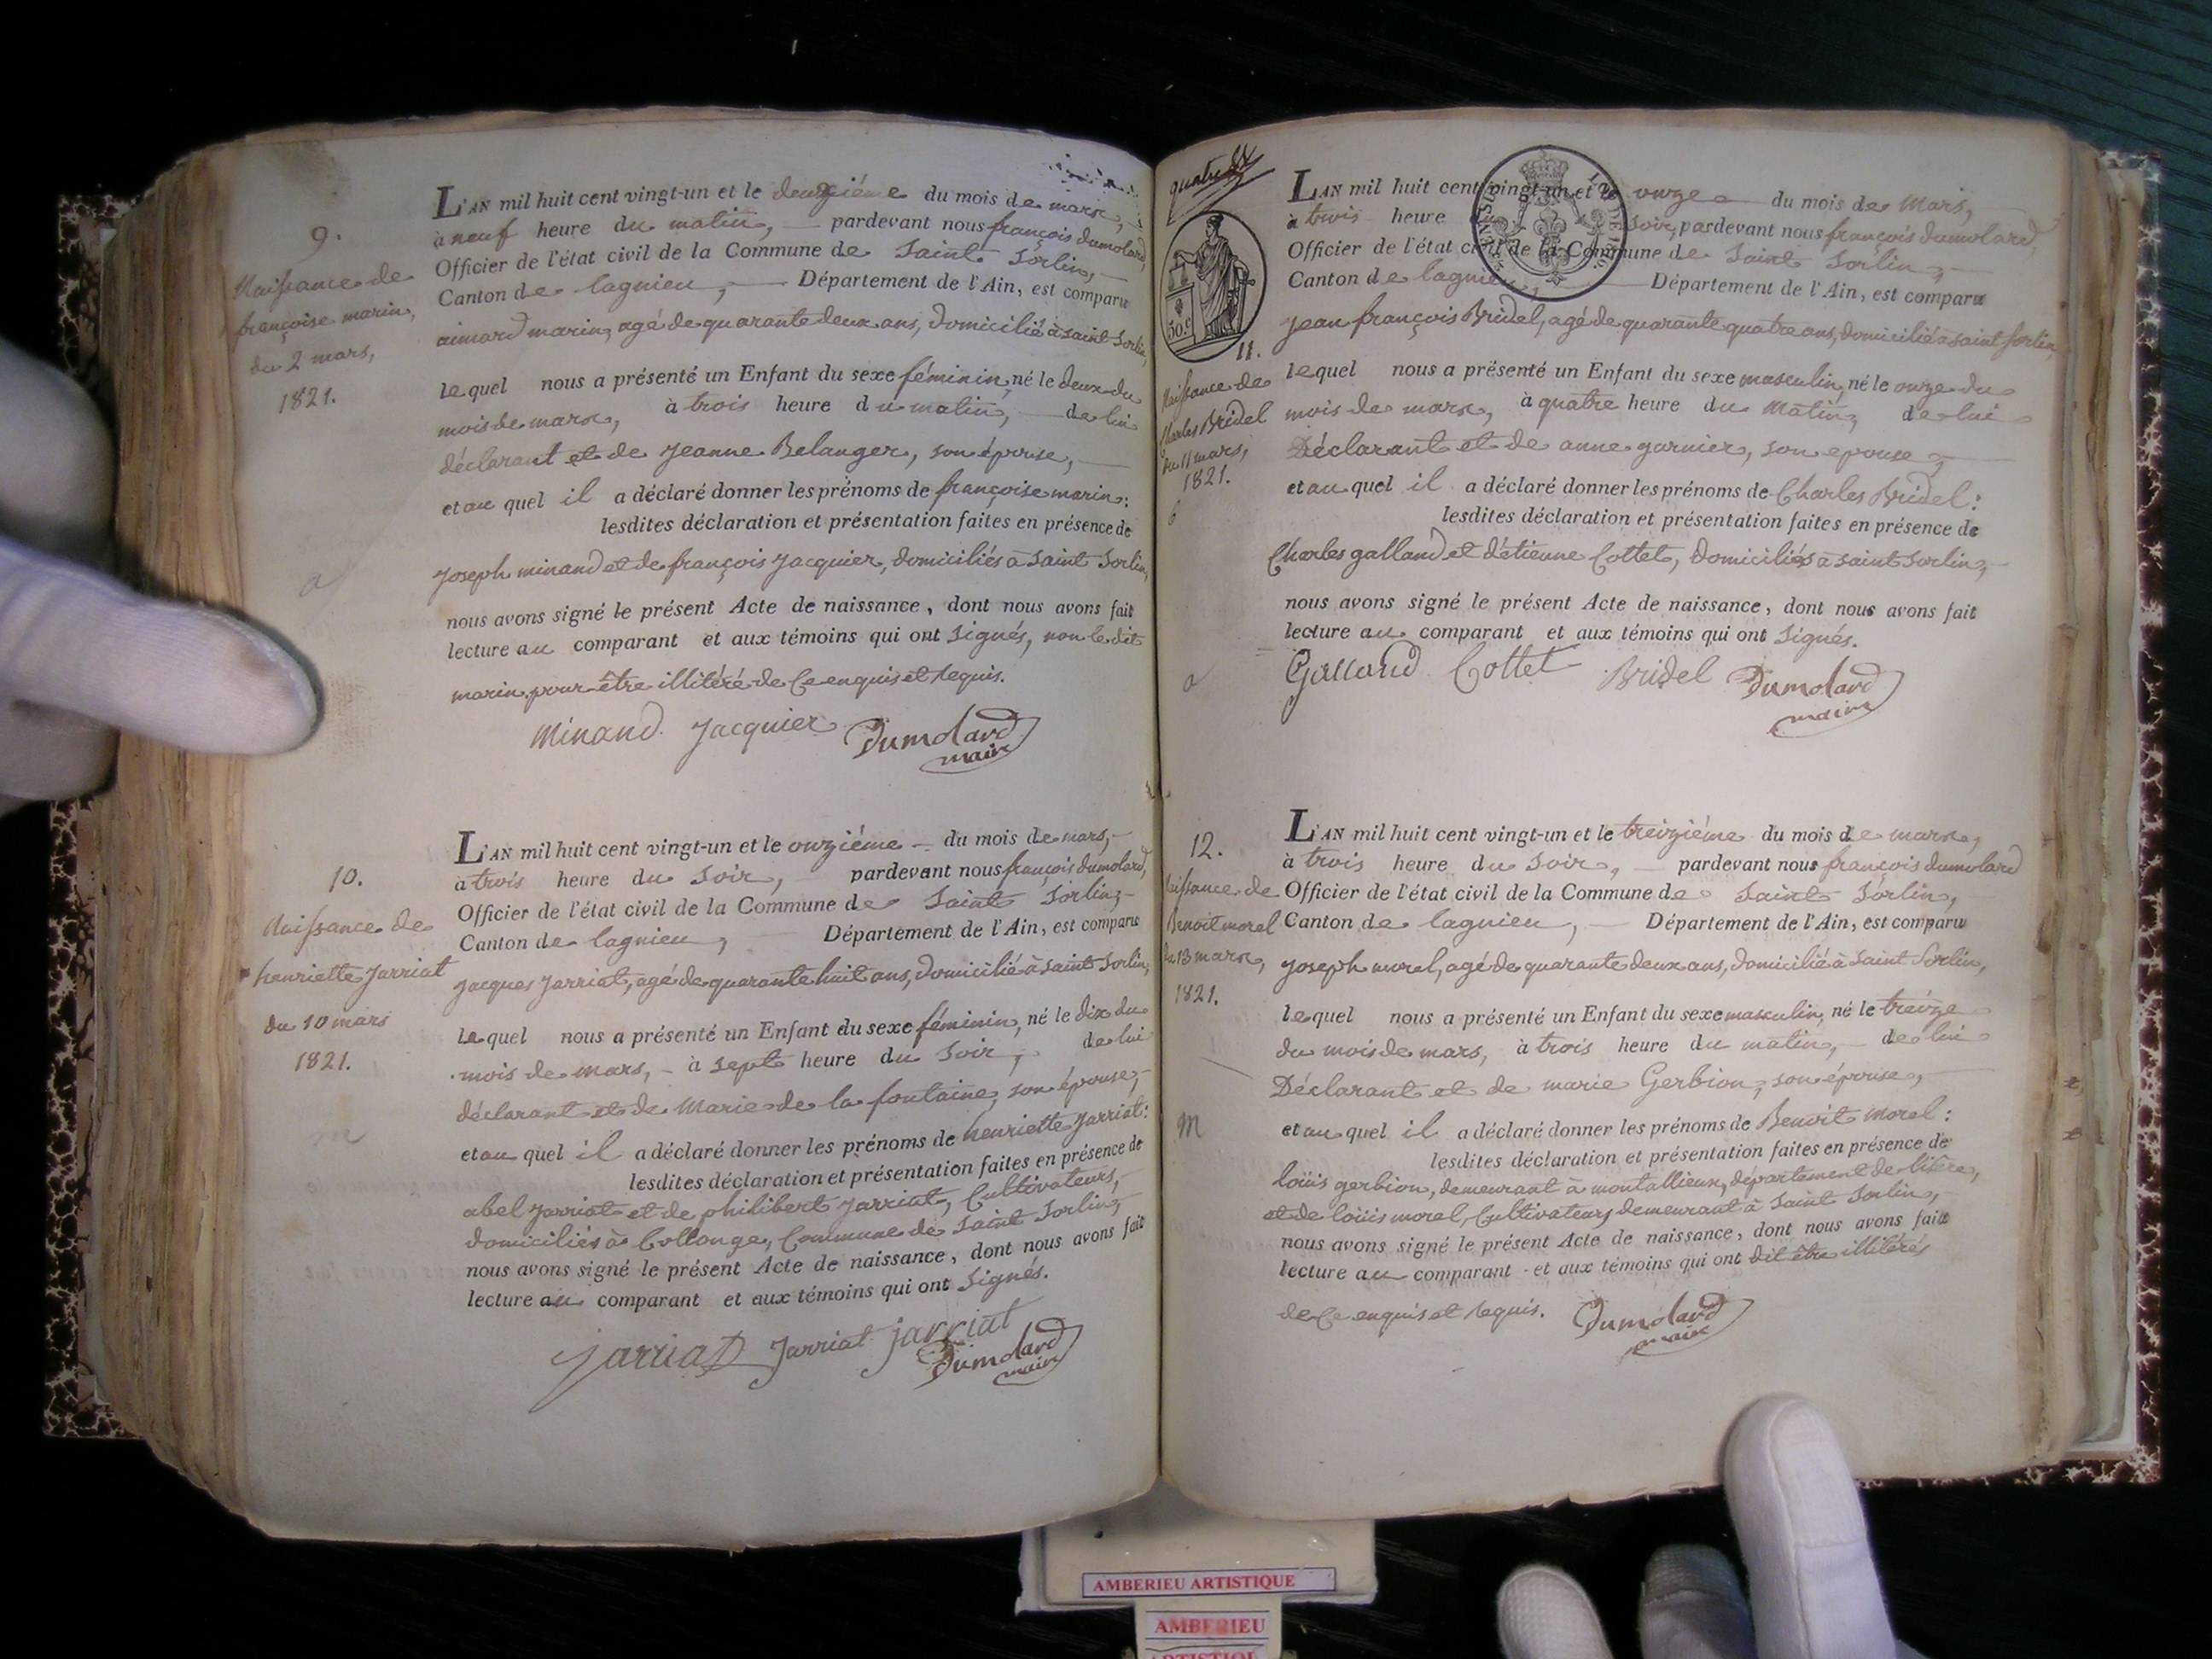 9.
Naissance de
françoise marin,
du 2 mars,
1821.
L'AN mil huit cent vingt-un et le deuxiéme du mois de mars,
à neuf heure du matin, pardevant nous françois dumolard,
Officier de l'état civil de la Commune de Saint Sorlin,
Canton de lagnieu, Département de l'Ain, est comparu
aimard marin, agé de quarante deux ans, domicilié à saint Sorlin,
lequel nous a présenté un Enfant du sexe féminin, né le deux du
mois de mars, à trois heure du matin, de lui
déclarant et de Jeanne Belanger, son épouse,
et au quel il a déclaré donner les prénoms de françoise marin:
lesdites déclaration et présentation faites en présence de
Joseph minand et de françois Jacquier, domiciliés à Saint Sorlin,
nous avons signé le présent Acte de naissance, dont nous avons fait
lecture au comparant et aux témoins qui ont Signés, non le dit
marin pour être illitéré de Ce enquis et Requis.
Minand Jacquier Dumolard
maire
10.
Naissance de
henriette Jarriat
du 10 mars
1821.
L'AN mil huit cent vingt-un et le onziéme du mois de mars,
à trois heure du Soir, pardevant nous françois dumolard,
Officier de l'état civil de la Commune de Saint Sorlin,
Canton de lagnieu, Département de l'Ain, est comparu
Jacques Jarriat, agé de quarante huit ans, domicilié à Saint Sorlin,
lequel nous a présenté un Enfant du sexe féminin, né le dix du
mois de mars, à sept heure du Soir, de lui
déclarant et de Marie de la fontaine, son épouse,
et au quel il a déclaré donner les prénoms de henriette Jarriat:
lesdites déclaration et présentation faites en présence de
abel Jarriat et de philibert Jarriat, Cultivateurs,
domiciliés à Collonge, Commune de Saint Sorlin,
nous avons signé le présent Acte de naissance, dont nous avons fait
lecture au comparant et aux témoins qui ont Signés.
Jarriat Jarriat jarriat
Dumolard
maire
50.c
11.
Naissance de
Charles Bridel
du 11 mars,
1821.
L'AN mil huit cent vingt-un et le onze du mois de Mars,
à trois heure Soir, pardevant nous françois dumolard,
Officier de l'état civil de la Commune de Saint Sorlin,
Canton de lagnieu, Département de l'Ain, est comparu
Jean françois Bridel, agé de quarante quatre ans, domicilié à saint Sorlin,
lequel nous a présenté un Enfant du sexe masculin, né le onze du
mois de mars, à quatre heure du Matin, de lui
Déclarant et de anne garnier, son epouse,
et au quel il a déclaré donner les prénoms de Charles Bridel:
lesdites déclaration et présentation faites en présence de
Charles galland et d'étienne Cottet, domiciliés à saint Sorlin,
nous avons signé le présent Acte de naissance, dont nous avons fait
lecture au comparant et aux témoins qui ont Signés.
Galland Cottet Bridel Dumolard
maire
12.
Naissance de
Benoit morel
du 13 mars,
1821.
m
L'AN mil huit cent vingt-un et le treiziéme du mois de mars,
à trois heure du Soir, pardevant nous françois dumolard
Officier de l'état civil de la Commune de Saint Sorlin,
Canton de lagnieu, Département de l'Ain, est comparu
Joseph morel, agé de quarante deux ans, domicilié à Saint Sorlin,
lequel nous a présenté un Enfant du sexe masculin, né le treize
du mois de mars, à trois heure du matin, de lui
Déclarant et de marie Gerbion, son épouse,
et au quel il a déclaré donner les prénoms de Benoit morel:
lesdites déclaration et présentation faites en présence de
loüis gerbion, demeurant à montallieux, département de lisère,
et de loüis morel, Cultivateurs demeurant à Saint Sorlin,
nous avons signé le présent Acte de naissance, dont nous avons fait
lecture au comparant et aux témoins qui ont dit être illitérés
de Ce enquis et Requis. Dumolard
maire
AMBERIEU ARTISTIQUE
AMBERIEU
ARTISTIQUE